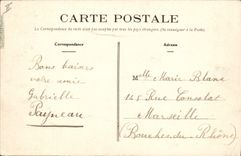 CARTE POSTALE
La Correspondance au recto n'est pas acceptée par tous les pays étrangers. (Se renseigner à la Poste).
Correspondance
Adresse
Bons baisers
votre amie
Gabrielle
Payneau
Melle Marie Blanc
145 Rue Consolat
Marseille
(Bouches du Rhône)